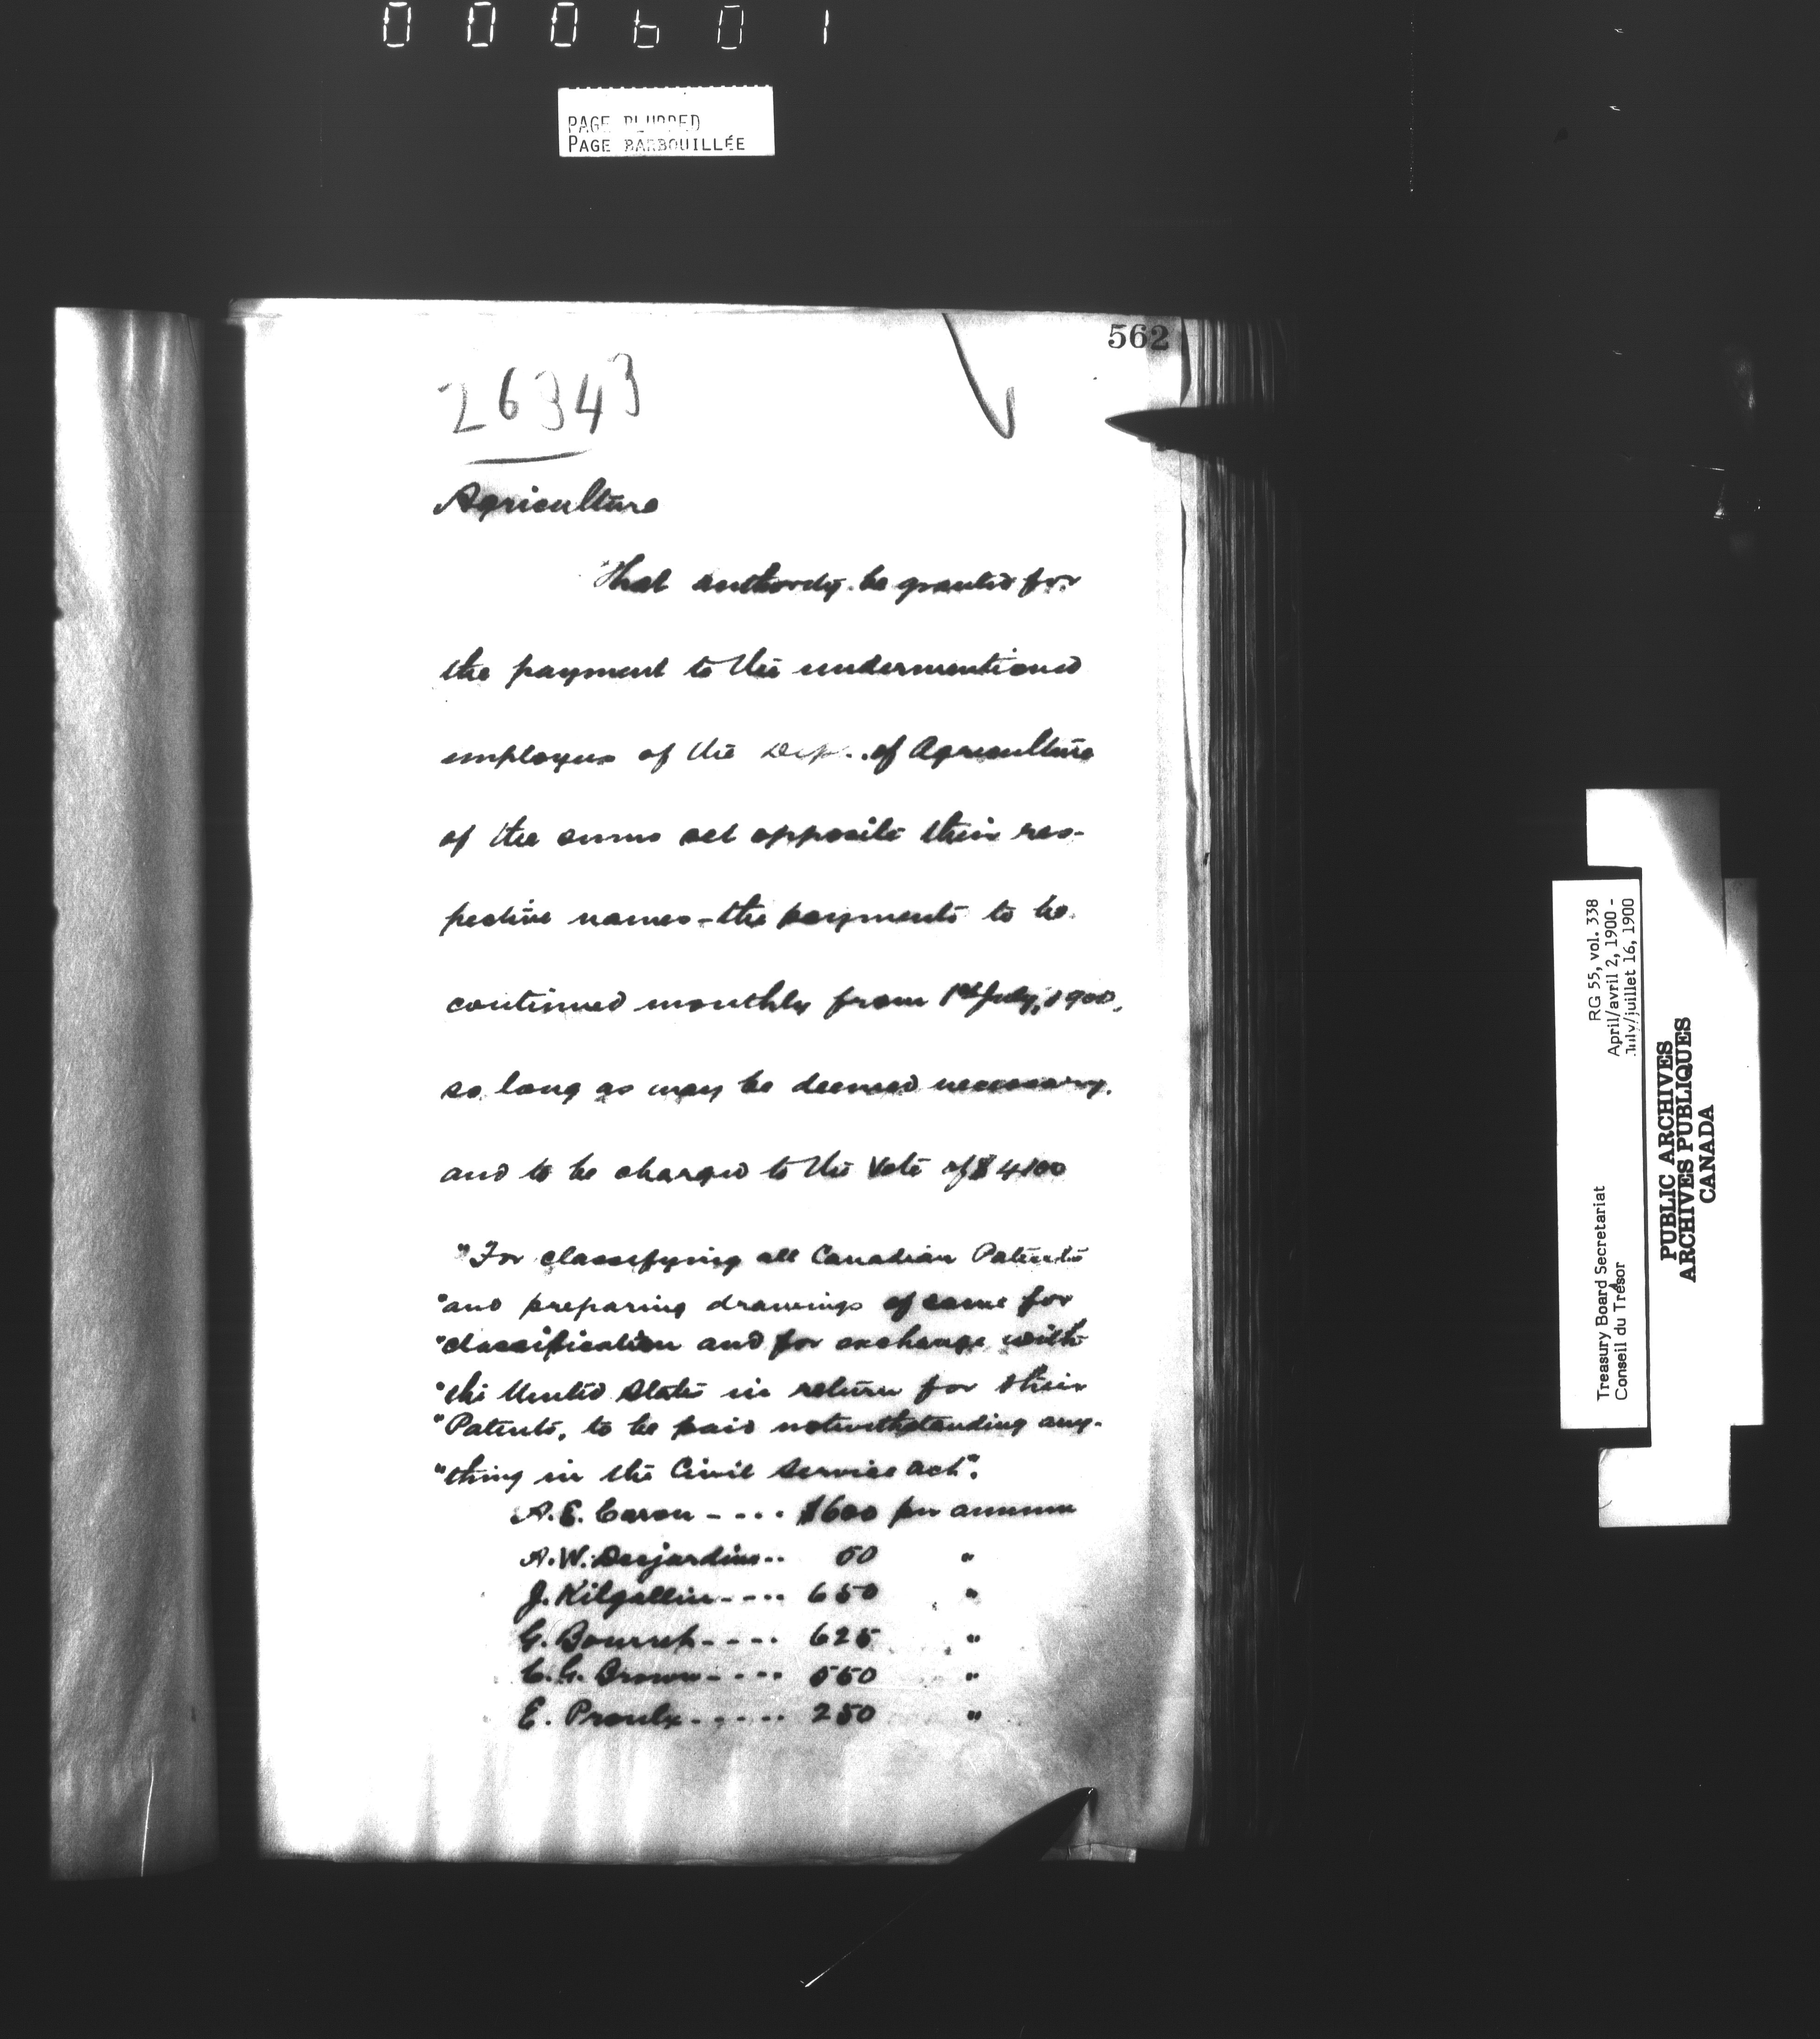 000601
PAGE BLURRED
PAGE BARBOUILLÉE
562
26343
Agriculture
That authority be granted for
the payment to the undermentioned
employees of the Dep. of Agriculture
of the sums set opposite their res-
pective names - the payments to be
continued monthly from 1st July, 1900,
so long as may be deemed necessary,
and to be charged to the Vote of $4100
"For classifying all Canadian Patents
"and preparing drawings of same for
"classification and for exchange with
"the United States in return for their
"Patents, to be paid notwithstanding any-
"thing in the Civil Service Act".
A. E. Caron - - - - $600 per annum
A. W. Desjardins - - 50 "
J. Kilgallin - - - - 650 "
G. - - - - 625 "
C. G. Brown - - - - 550 "
E. Proulx - - - - - - 250 "
RG 55, vol. 338
April/avril 2, 1900 -
July/juillet 16, 1900
Treasury Board Secretariat
Conseil du Trésor
PUBLIC ARCHIVES
ARCHIVES PUBLIQUES
CANADA